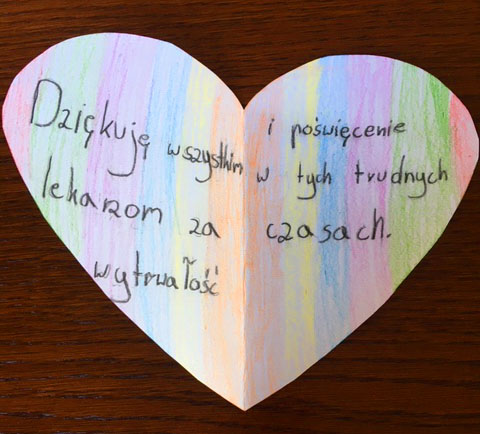 Dziękuję wszystkim
lekarzom za
wytrwałość
i poświęcenie
w tych trudnych
czasach.